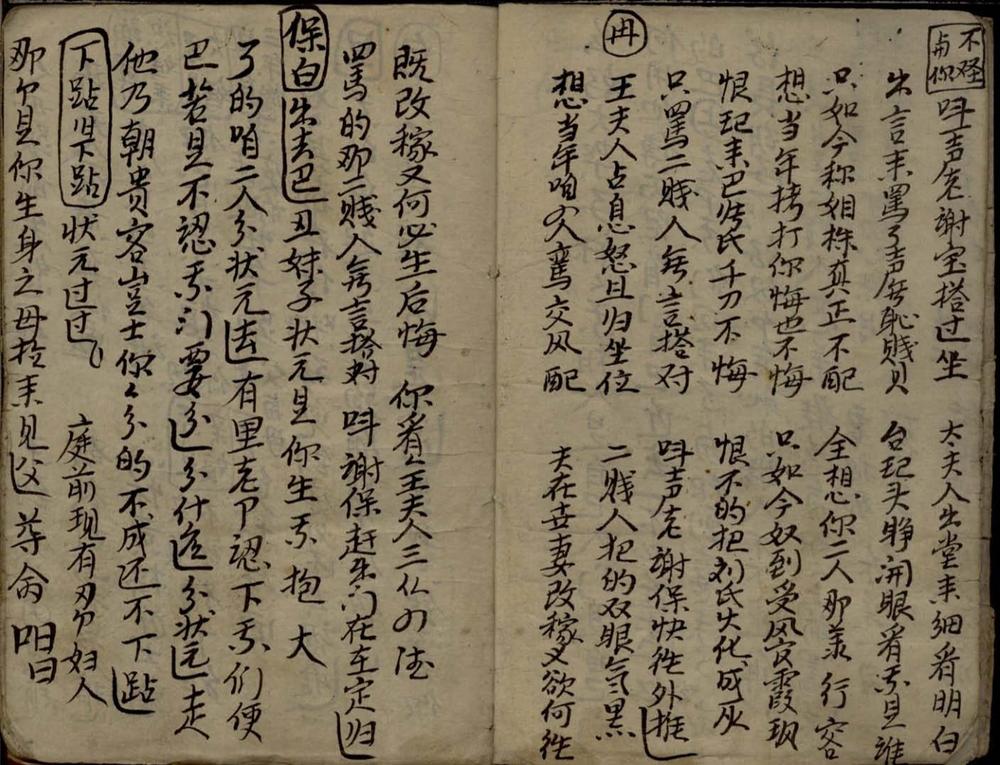 不怪与你 叫声老谢宝搭过坐 太夫人出堂来细看明白
出言来罵了声無恥賤貝 台起头睁开眼看我是谁
只如今称姐妹真正不配 全想你二人那行容
想当年拷打你悔也不悔 只如今奴到受风官霞珮
恨起来巴张氏千刀不悔 恨不的把刘氏火化成灰
只罵二賤人無言搭对 叫声老谢保快往外推
冉 王夫人占息怒且归坐位 二賤人把的双眼气黑
想当年咱鸾交风配 夫在妾妻改稼又欲何往
既改稼又何必生后悔 你看全夫人三从四德
罵的那二賤人無言搭对 叫谢保赶出门在左定归
保白 出去巴 丑妹子状元是你生我抱大
了的咱二人分状元去有里老卩認下我们便
巴若是不認我门要分分什么分状元走
他乃朝贵客岂士你々分的不成还不下跕
下跕是下跕 状元过过 庭前现有刃个妇人
那个是你生身之母拉来见父尊命 唱曰